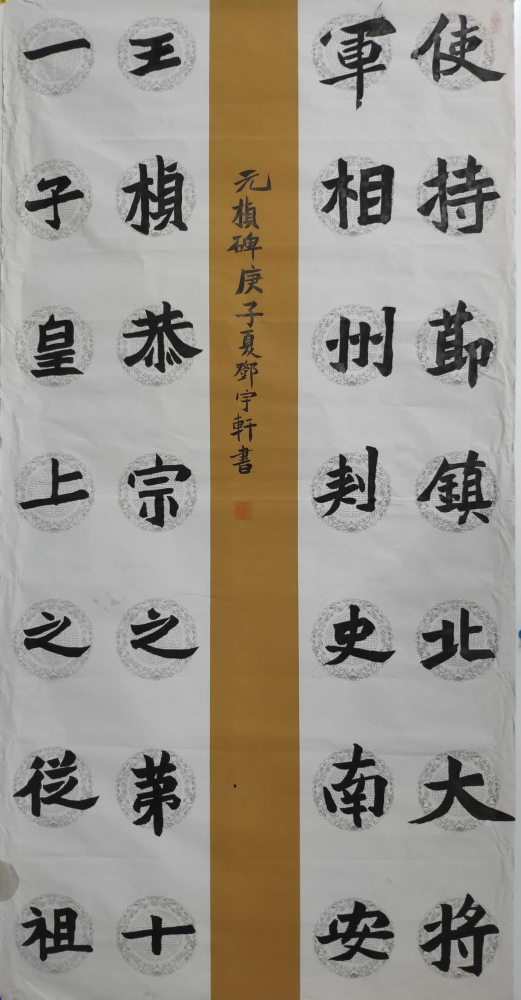 使持莭鎮北大将
軍相州刾史南安
王楨恭宗之苐十
一子皇上之従祖
元楨碑庚子夏鄧宇軒書